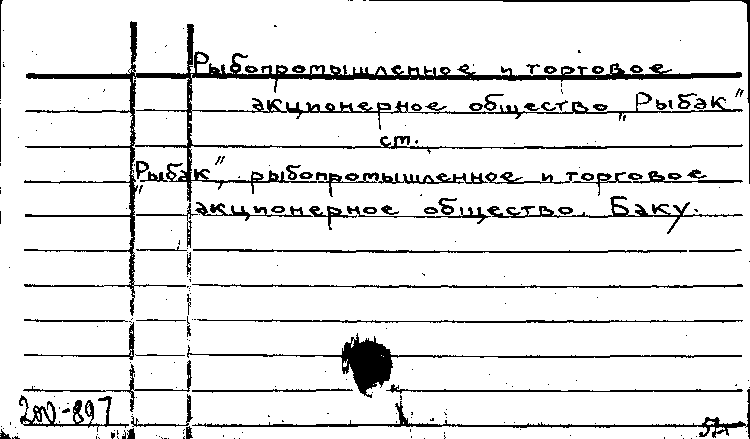 Рыбопромышленное и торговое
акционерное общество „Рыбак"
ст.
„Рыбак", рыбопромышленное и торговое
акционерное общество. Баку.
200-897